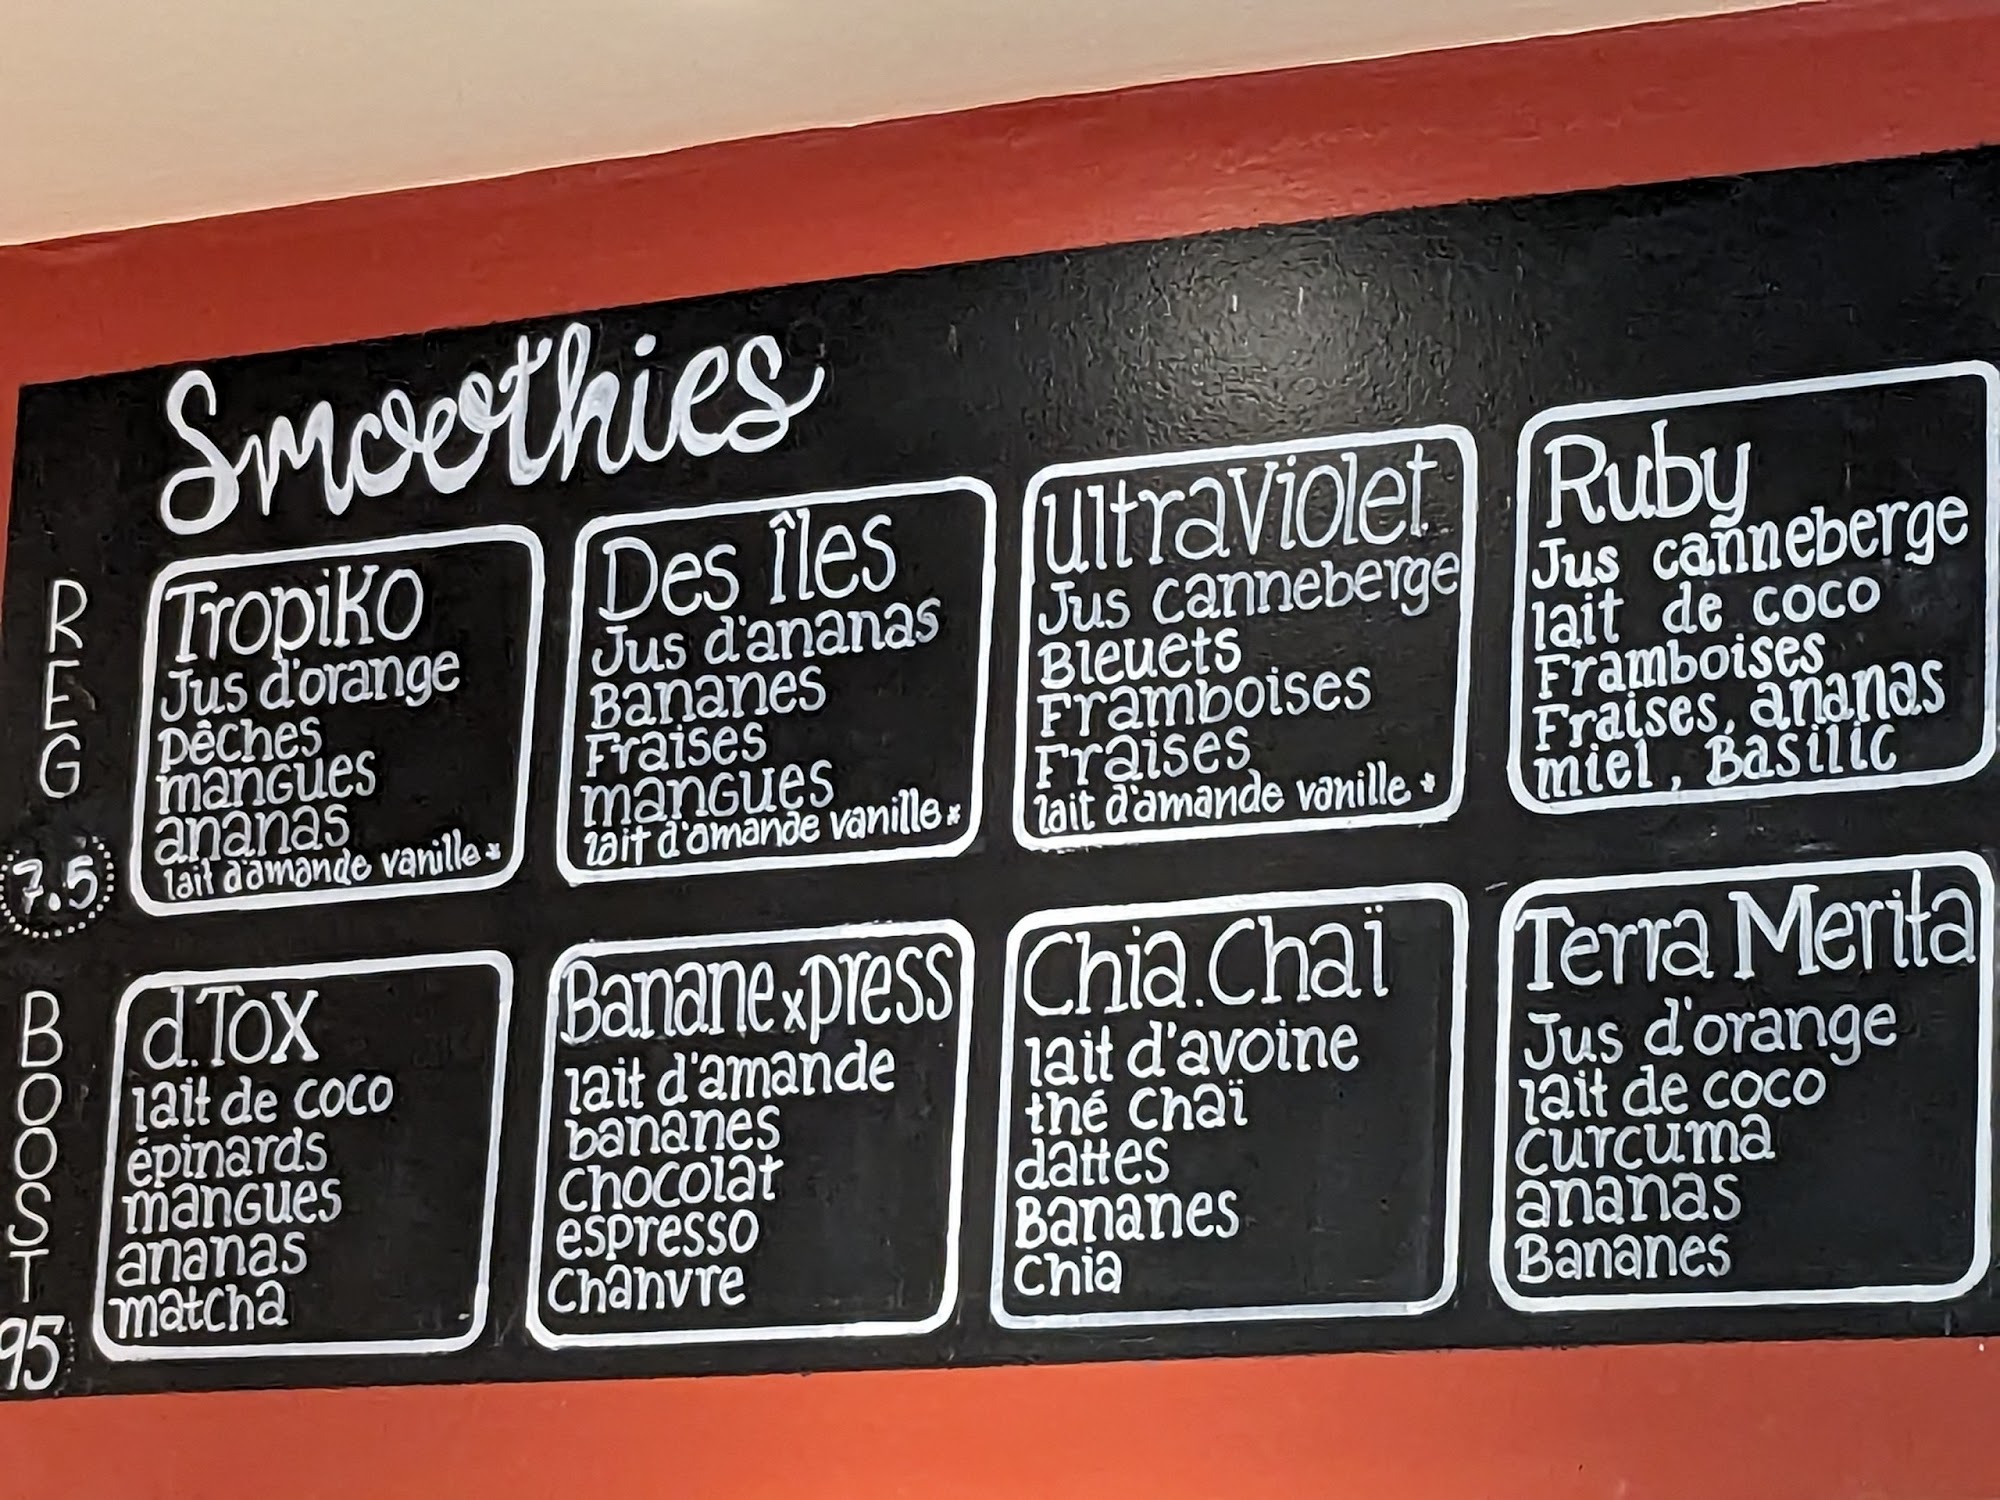 Smoothies
REG
7.5
TropiKo
Jus d'orange
pêches
mangues
ananas
lait d'amande vanille*
Des Îles
Jus d'ananas
Bananes
Fraises
mangues
lait d'amande vanille*
UltraViolet
Jus canneberge
Bleuets
Framboises
Fraises
lait d'amande vanille*
Ruby
Jus canneberge
lait de coco
Framboises
Fraises, ananas
miel, Basilic
BOOST
95
d.Tox
lait de coco
épinards
mangues
ananas
matcha
Bananexpress
lait d'amande
bananes
chocolat
espresso
chanvre
Chia.Chaï
lait d'avoine
thé chaï
dattes
Bananes
chia
Terra Merita
Jus d'orange
lait de coco
curcuma
ananas
Bananes